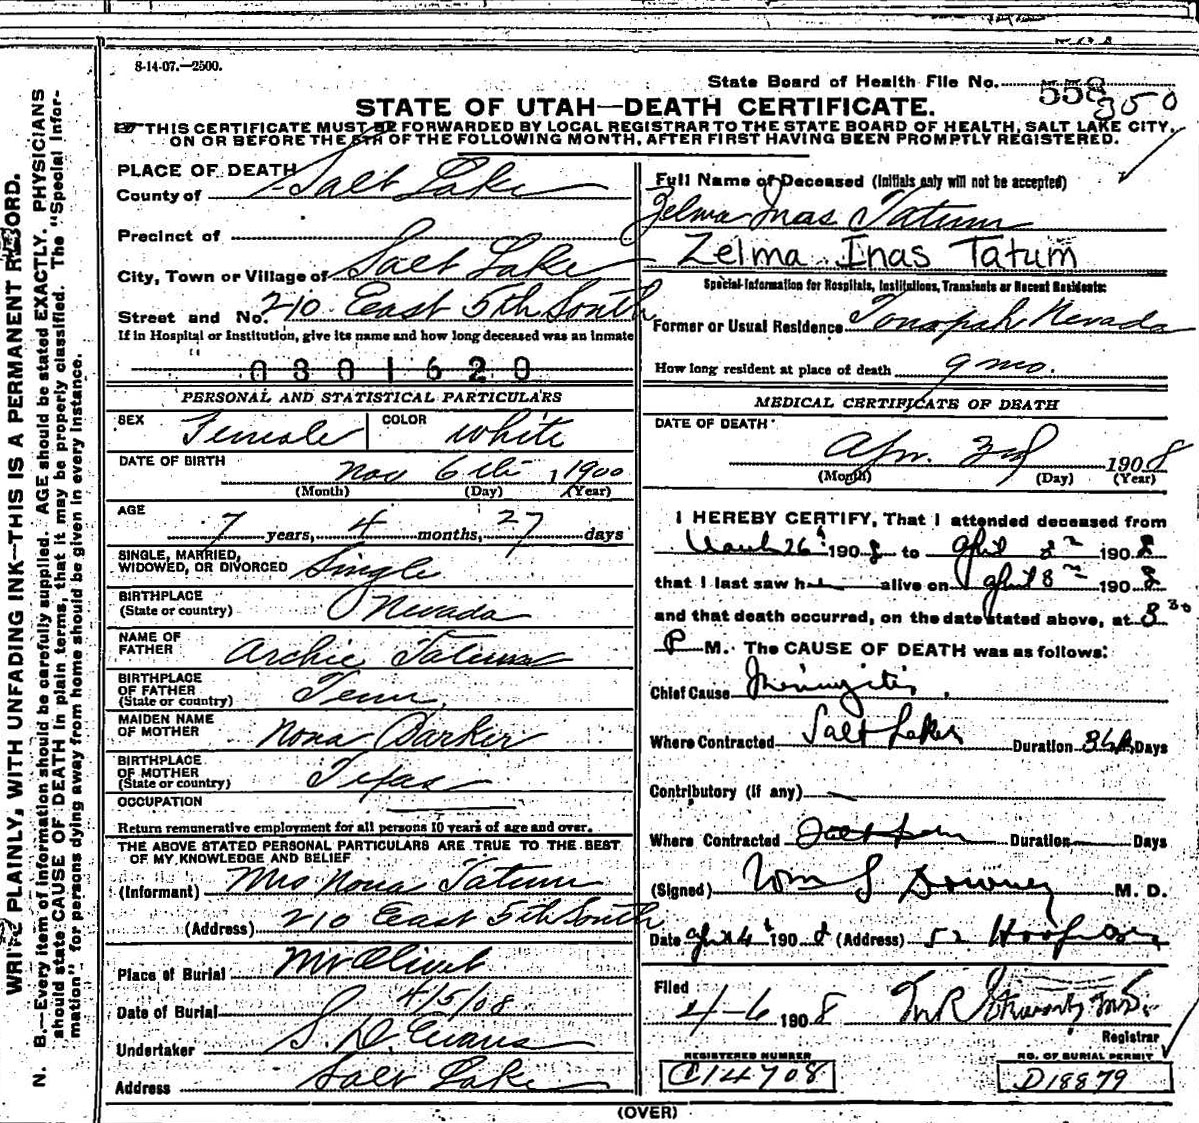 8-14-07.—2500.
State Board of Health File No. 558 350
STATE OF UTAH—DEATH CERTIFICATE.
THIS CERTIFICATE MUST BE FORWARDED BY LOCAL REGISTRAR TO THE STATE BOARD OF HEALTH, SALT LAKE CITY,
ON OR BEFORE THE 5TH OF THE FOLLOWING MONTH, AFTER FIRST HAVING BEEN PROMPTLY REGISTERED.
PLACE OF DEATH
County of Salt Lake
Precinct of
City, Town or Village of Salt Lake
Street and No. 210 East 5th South
If in Hospital or Institution, give its name and how long deceased was an inmate
0301620
PERSONAL AND STATISTICAL PARTICULARS
SEX Female COLOR White
DATE OF BIRTH Nov 6th, 1900
(Month) (Day) (Year)
AGE
7 years, 4 months, 27 days
SINGLE, MARRIED,
WIDOWED, OR DIVORCED Single
BIRTHPLACE
(State or country) Nevada
NAME OF
FATHER Archie Tatum
BIRTHPLACE
OF FATHER
(State or country) Tenn.
MAIDEN NAME
OF MOTHER Nona Barker
BIRTHPLACE
OF MOTHER
(State or country) Texas
OCCUPATION
Return remunerative employment for all persons 10 years of age and over.
THE ABOVE STATED PERSONAL PARTICULARS ARE TRUE TO THE BEST
OF MY KNOWLEDGE AND BELIEF
(Informant) Mrs Nona Tatum
(Address) 210 East 5th South
Place of Burial Mt Olivet
Date of Burial 4/5/08
Undertaker S. D. Evans
Address Salt Lake
Full Name of Deceased (Initials only will not be accepted)
Zelma Inas Tatum
Zelma Inas Tatum
Special Information for Hospitals, Institutions, Transients or Recent Residents:
Former or Usual Residence Tonopah Nevada
How long resident at place of death 9 mo.
MEDICAL CERTIFICATE OF DEATH
DATE OF DEATH
Apr. 3rd 1908
(Month) (Day) (Year)
I HEREBY CERTIFY, That I attended deceased from
March 26th 1908 to April 1908
that I last saw h alive on April 1908
and that death occurred, on the date stated above, at 8 30
P M. The CAUSE OF DEATH was as follows:
Chief Cause Meningitis.
Where Contracted Salt Lake Duration Days
Contributory (if any)
Where Contracted Salt Lake Duration Days
(Signed) Wm S Downey M. D.
Date April 4th 1908 (Address) 52
Filed
4-6 1908
Registrar
REGISTERED NUMBER
C14708
NO. OF BURIAL PERMIT
D18879
(OVER)
WRITE PLAINLY, WITH UNFADING INK—THIS IS A PERMANENT RECORD.
N. B.—Every item of information should be carefully supplied. AGE should be stated EXACTLY. PHYSICIANS
should state CAUSE OF DEATH in plain terms, that it may be properly classified. The "Special Infor-
mation" for persons dying away from home should be given in every instance.